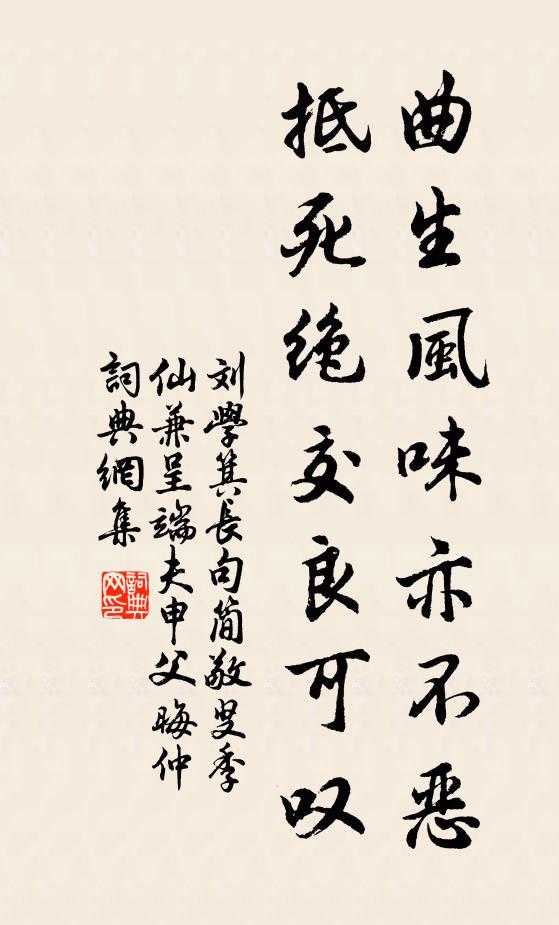 曲生風味亦不恶
抵死绝交良可叹
刘學箕長句简敬叟季
仙兼呈端夫申父晦仲
詞典網集
詞典网印